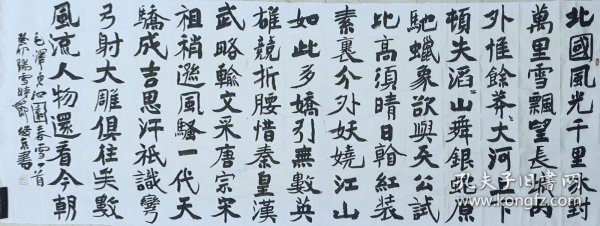 北國風光千里冰封
萬里雪飄望長城內
外惟餘莽々大河上下
頓失滔々山舞銀蛇原
馳蠟象欲與天公試
比高須晴日看紅裝
素裹分外妖嬈江山
如此多嬌引無數英
雄競折腰惜秦皇漢
武略輸文采唐宗宋
祖稍遜風騷一代天
驕成吉思汗祇識彎
弓射大雕俱往矣數
風流人物還看今朝
毛澤東沁園春雪一首
癸卯瑞雪時節 書
孔夫子旧书网